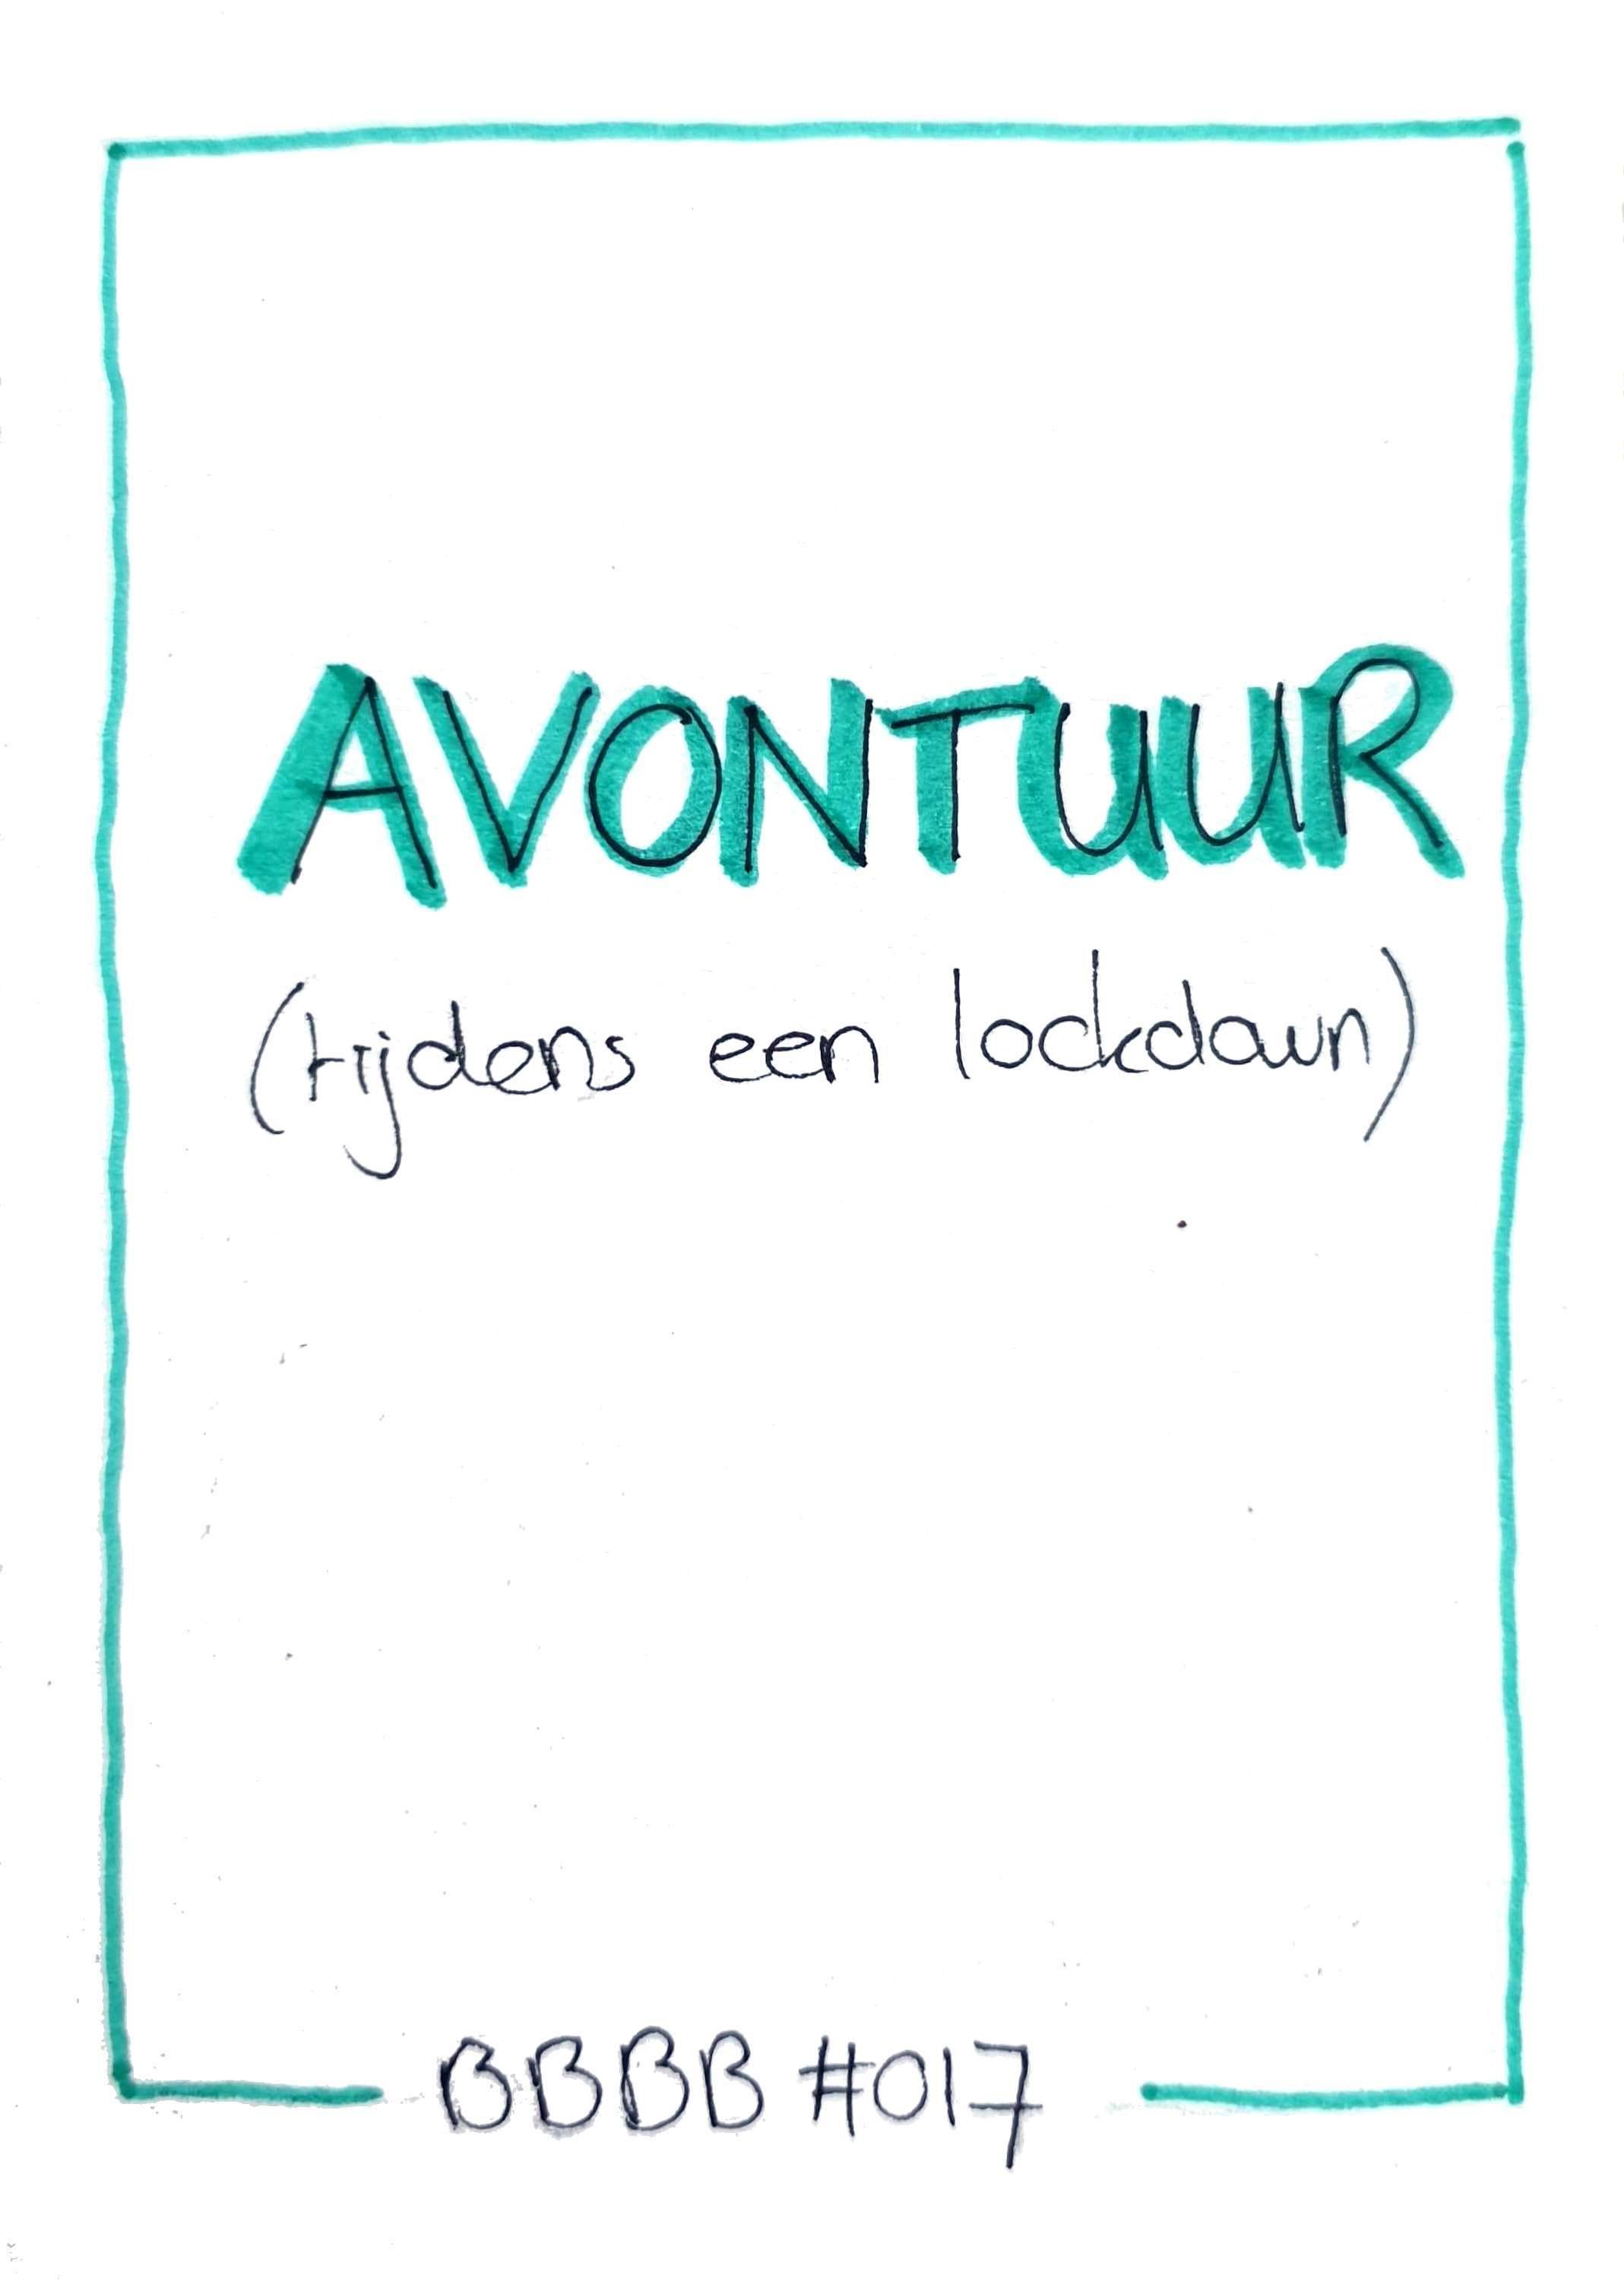 AVONTUUR
(tijdens een lockdown)
BBBB #017